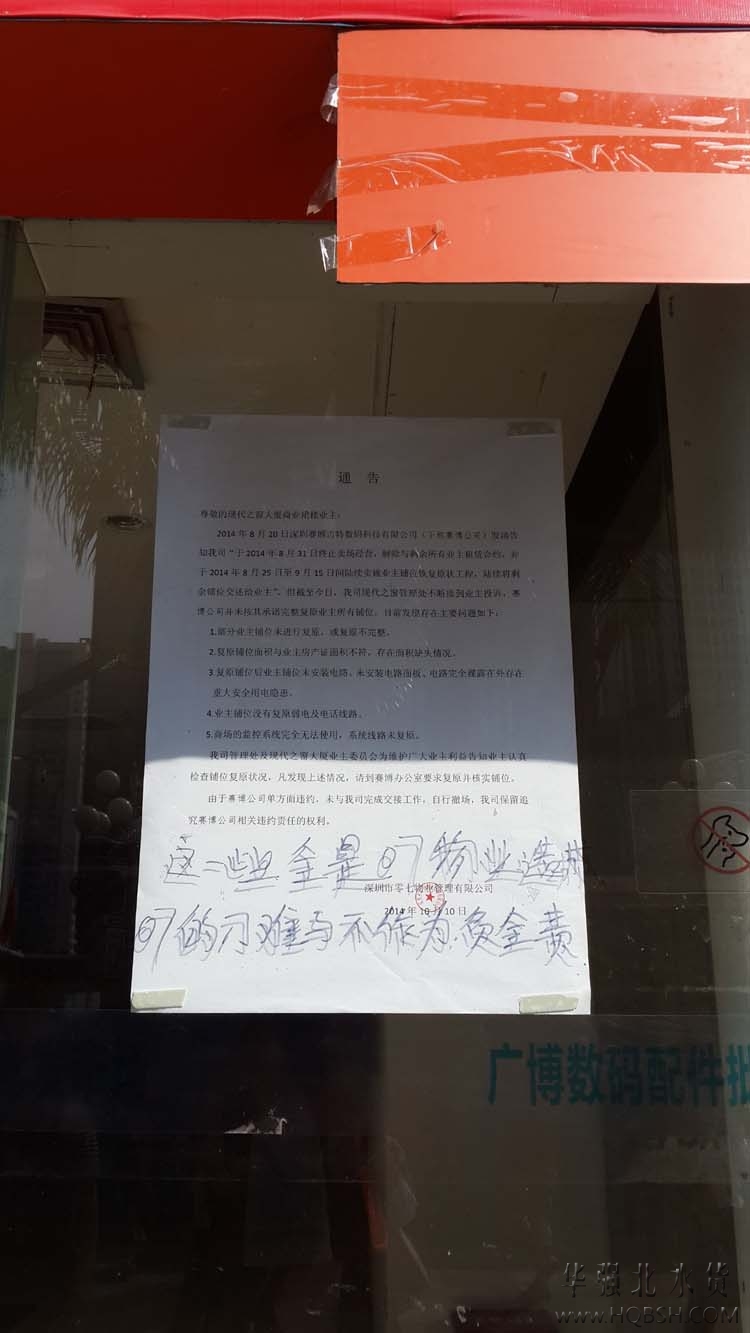 通 告
尊敬的现代之窗大厦商业裙楼业主：
2014年8月20日深圳赛博宏特数码科技有限公司（下称赛博公司）发函告
知我司“于2014年8月31日终止卖场经营，解除与剩余所有业主租赁合约，并
于2014年8月25日至9月15日间陆续实施业主铺位恢复原状工程，陆续将剩
余铺位交还给业主”。但截至今日，我司现代之窗管理处不断接到业主投诉，赛
博公司并未按其承诺完整复原业主所有铺位。目前发现存在主要问题如下：
1.部分业主铺位未进行复原，或复原不完整。
2.复原铺位面积与业主房产证面积不符，存在面积缺失情况。
3.复原铺位后业主铺位未安装电路、未安装电路面板、电路完全裸露在外存在
重大安全用电隐患。
4.业主铺位没有复原弱电及电话线路。
5.商场的监控系统完全无法使用，系统线路未复原。
我司管理处及现代之窗大厦业主委员会为维护广大业主利益告知业主认真
检查铺位复原状况，凡发现上述情况，请到赛博办公室要求复原并核实铺位。
由于赛博公司单方面违约，未与我司完成交接工作，自行撤场，我司保留追
究赛博公司相关违约责任的权利。
这一些全是07物业造成
深圳市零七物业管理有限公司
2014年10月10日
07的刁难与不作为.负全责
广博数码配件批
华强北水货
WWW.HQBSH.COM